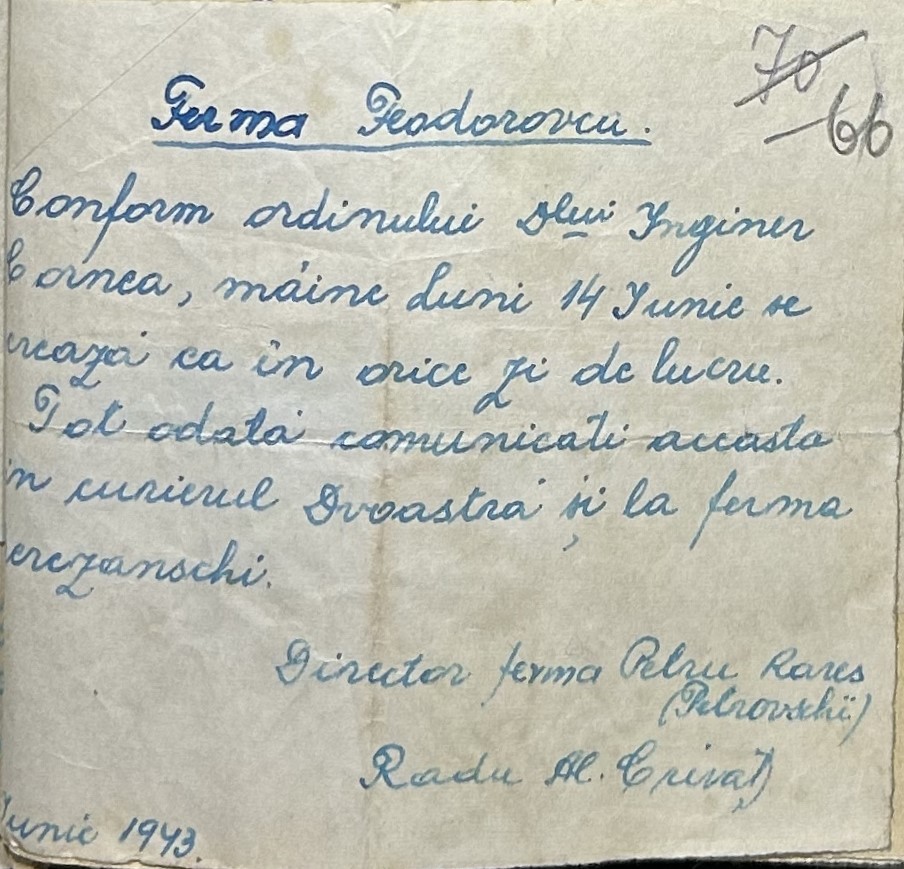 70
66
Ferma Feodorovcu.
Conform ordinului Dlui Inginer
Cornea, máine Luni 14 Iunie se
crează ca în orice zi de lucru.
Tot odată comunicati aceasta
in curierul Dvoastră și la ferma
erezanschi.
Director ferma Petru Rares
(Petrovschii)
Radu Al. Crivăț
Iunie 1943.